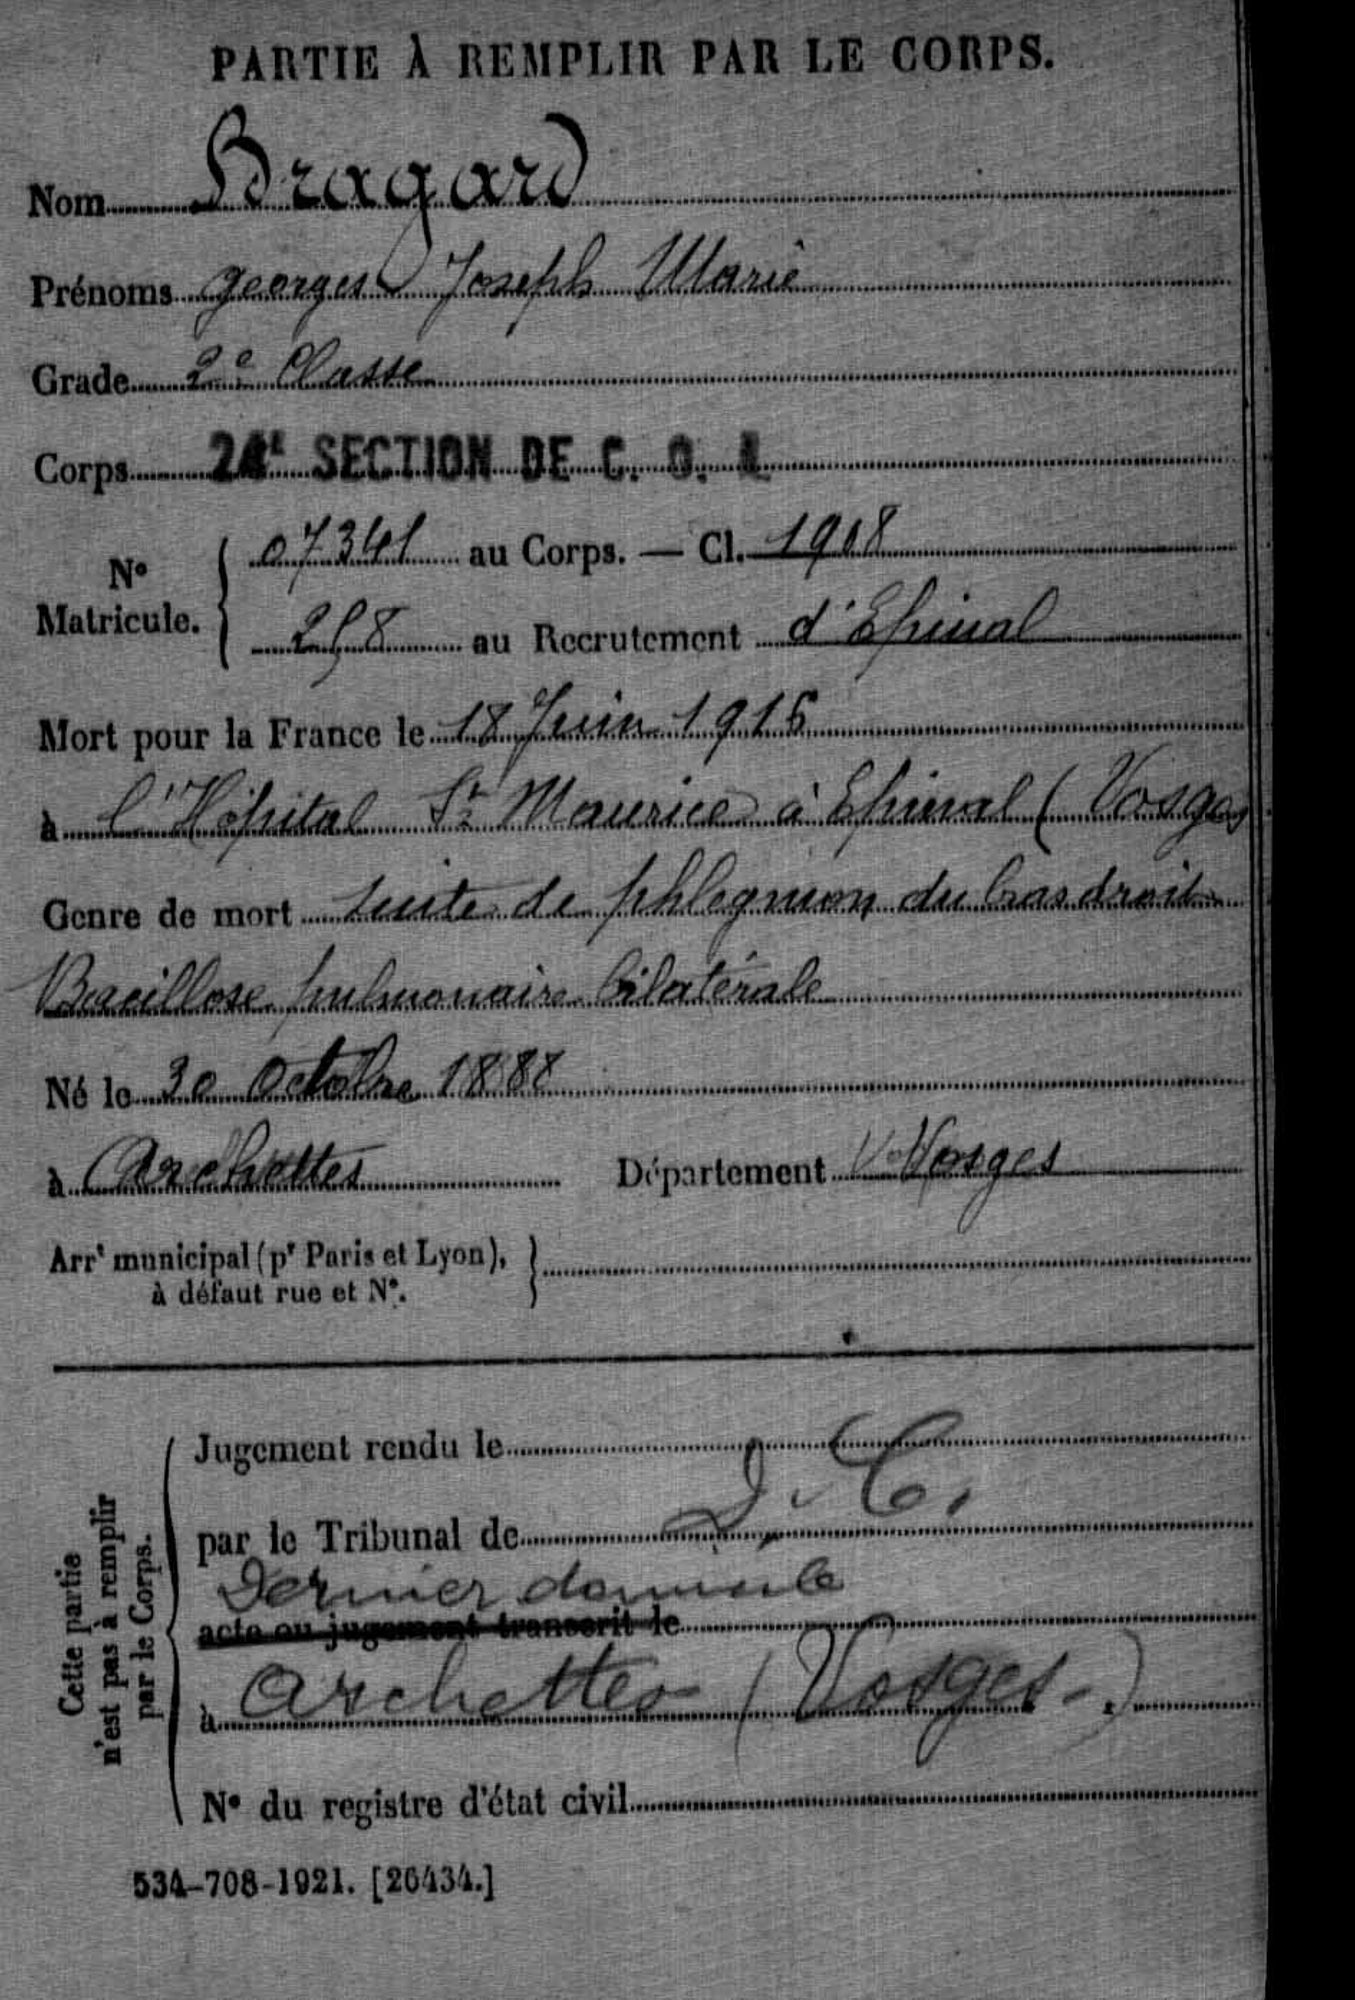 PARTIE À REMPLIR PAR LE CORPS.
Nom Bragard
Prénoms Georges Joseph Marie
Grade 2e Classe
Corps 24e SECTION DE C. O. A
No Matricule. { 07341 au Corps. — Cl. 1908
258 au Recrutement d'Epinal
Mort pour la France le 18 Juin 1915
à l'Hôpital St Maurice à Epinal (Vosges)
Genre de mort suite de phlegmon du bras droit
Bacillose pulmonaire bilatérale
Né le 30 Octobre 1888
à Archettes Département Vosges
Arrt municipal (pr Paris et Lyon), }
à défaut rue et No.
Cette partie
n'est pas à remplir
par le Corps.
Jugement rendu le
par le Tribunal de D. C.
Dernier domicile
acte ou jugement transcrit le
à Archettes (Vosges.)
No du registre d'état civil
534-708-1921. [26434.]